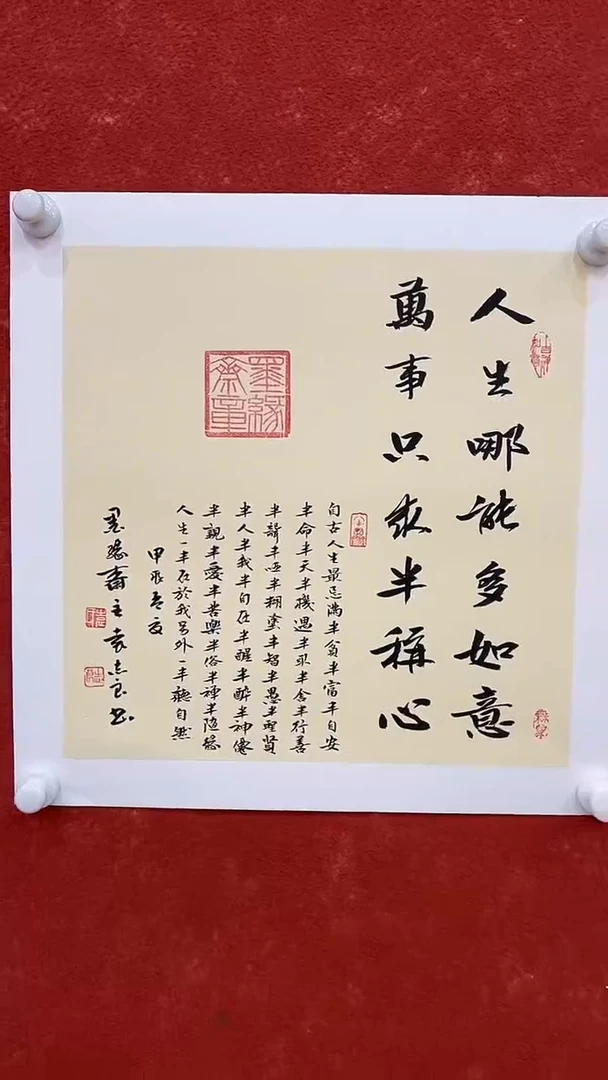 人生哪能多如意
萬事只求半稱心
自古人生最忌滿半貧半富半自安
半命半天半機遇半取半舍半行善
半聾半啞半糊塗半智半愚半聖賢
半人半我半自在半醒半醉半神僊
半親半愛半苦樂半俗半禪半隨緣
人生一半在於我另外一半聽自然
甲辰夏
墨緣齋主袁志良书
墨緣齋章